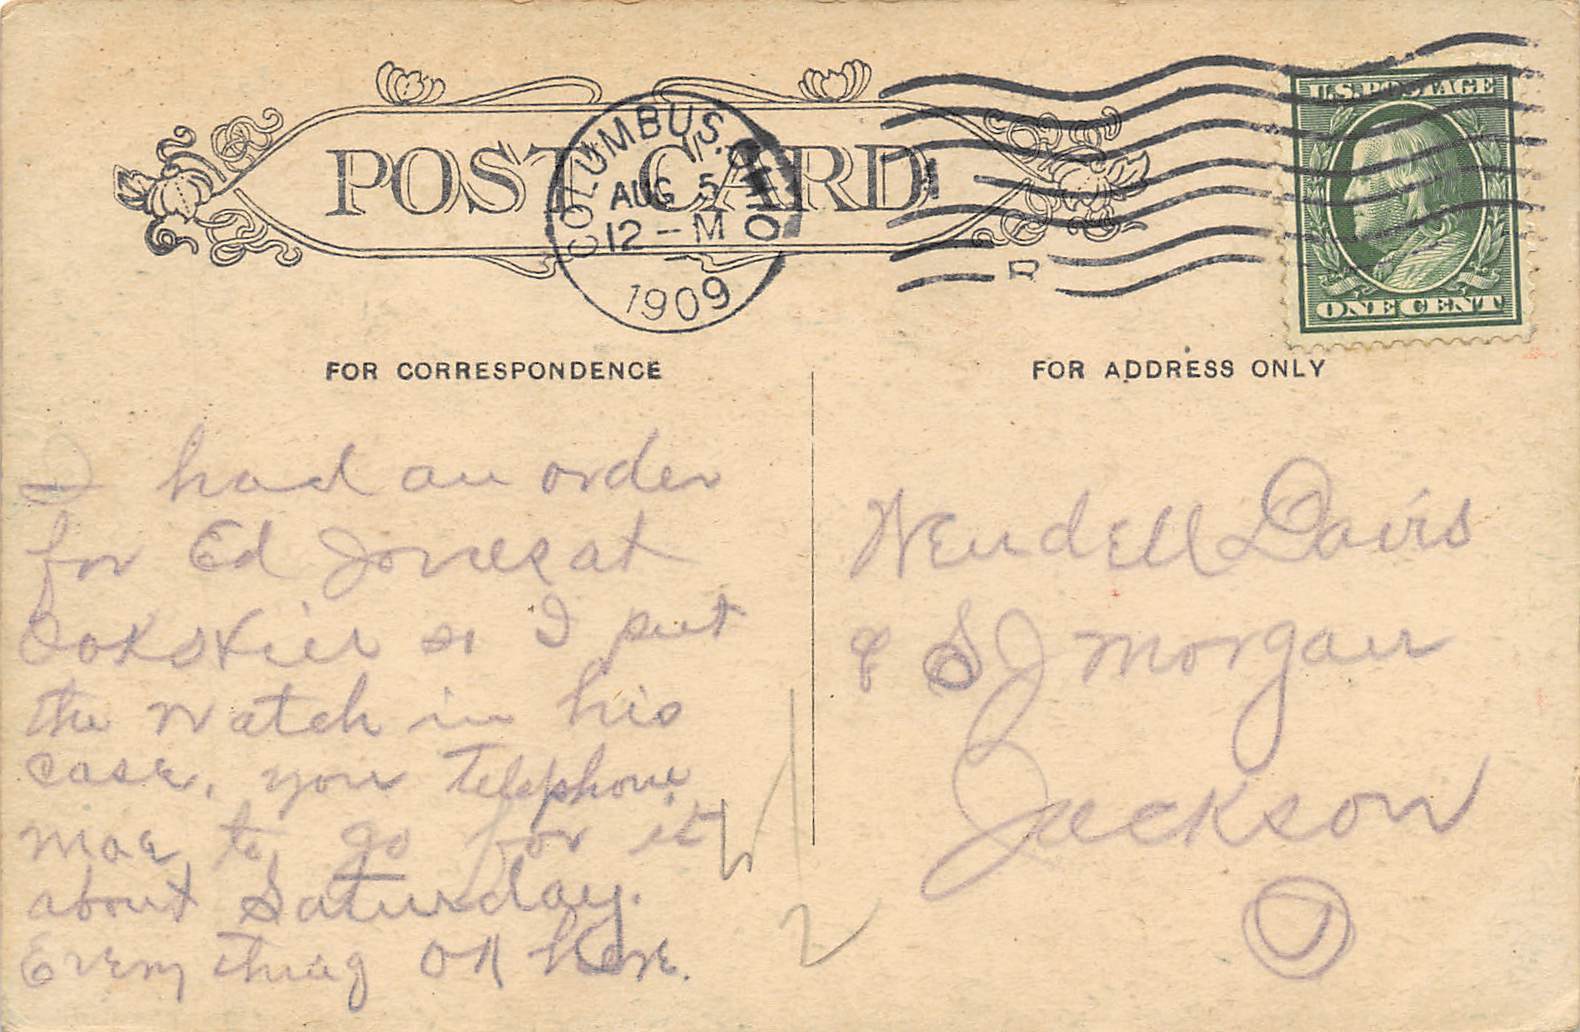 POST CARD
COLUMBUS, OHIO
AUG 5
12 - M
1909
U.S. POSTAGE
ONE CENT
FOR CORRESPONDENCE
FOR ADDRESS ONLY
I had an order
for Ed Jones at
so I put
the watch in his
case, you Telephone
to go for it
about Saturday.
Everything OK here.
Wendell Davis
% S J Morgan
Jackson
O
2